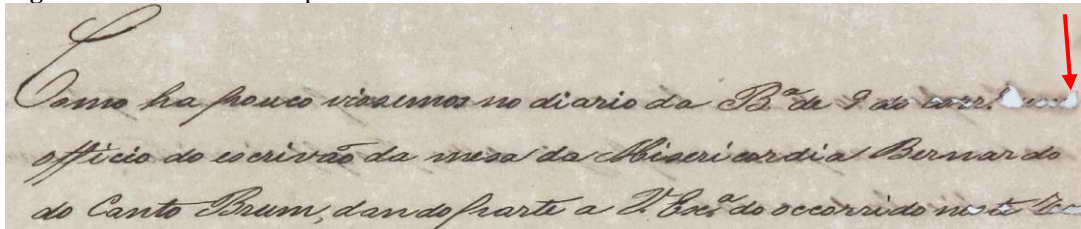 Como ha pouco viosemos no diario da B.ª de 9 do corr.
officio do escrivão da mesa da Misericordia Bernardo
do Canto Brum, dando parte a V. Exc.ª do occorrido neste